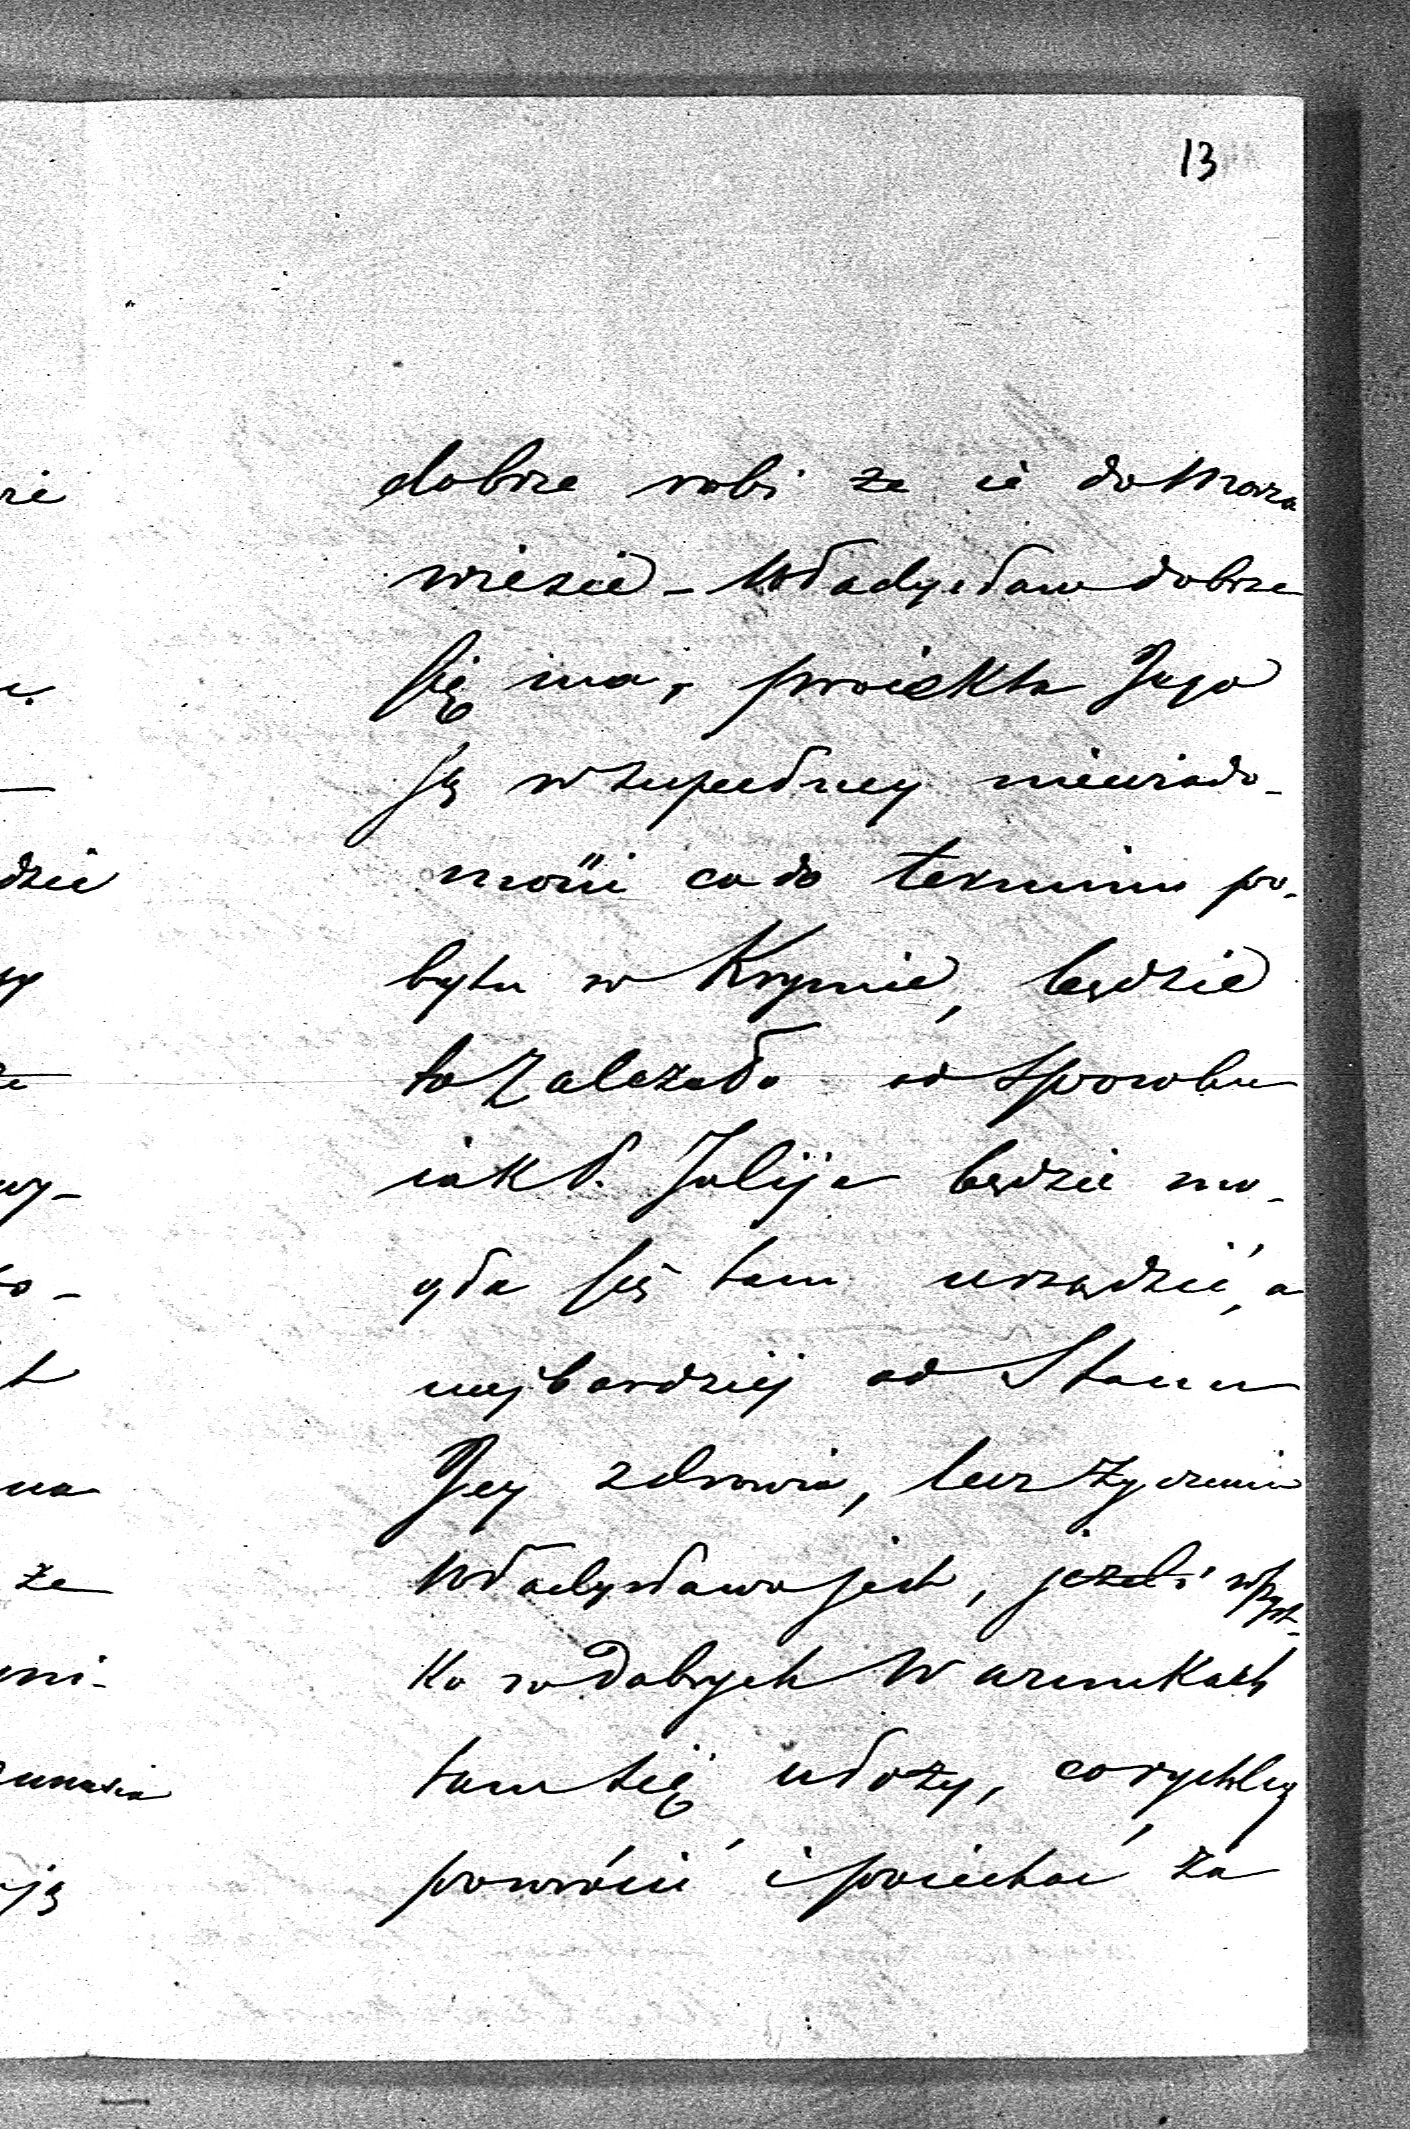 13
dobrze robi że ie do Morza
wiezie – Władysław dobrze
się ma, proiekta Jego
są w zupełney niewiado-
mości co do terminu po-
bytu w Krymie, będzie
to Zależało od sposobu
iak P. Julija będzie mo-
gła się tam urządzić, a
najbardziej od Stanu
Jey zdrowia, lecz życzenie
Władysława jest, jeżeli wszyst-
ko w dobrych Warunkach
tam się ułoży, corychley
powrócić i poiechać za